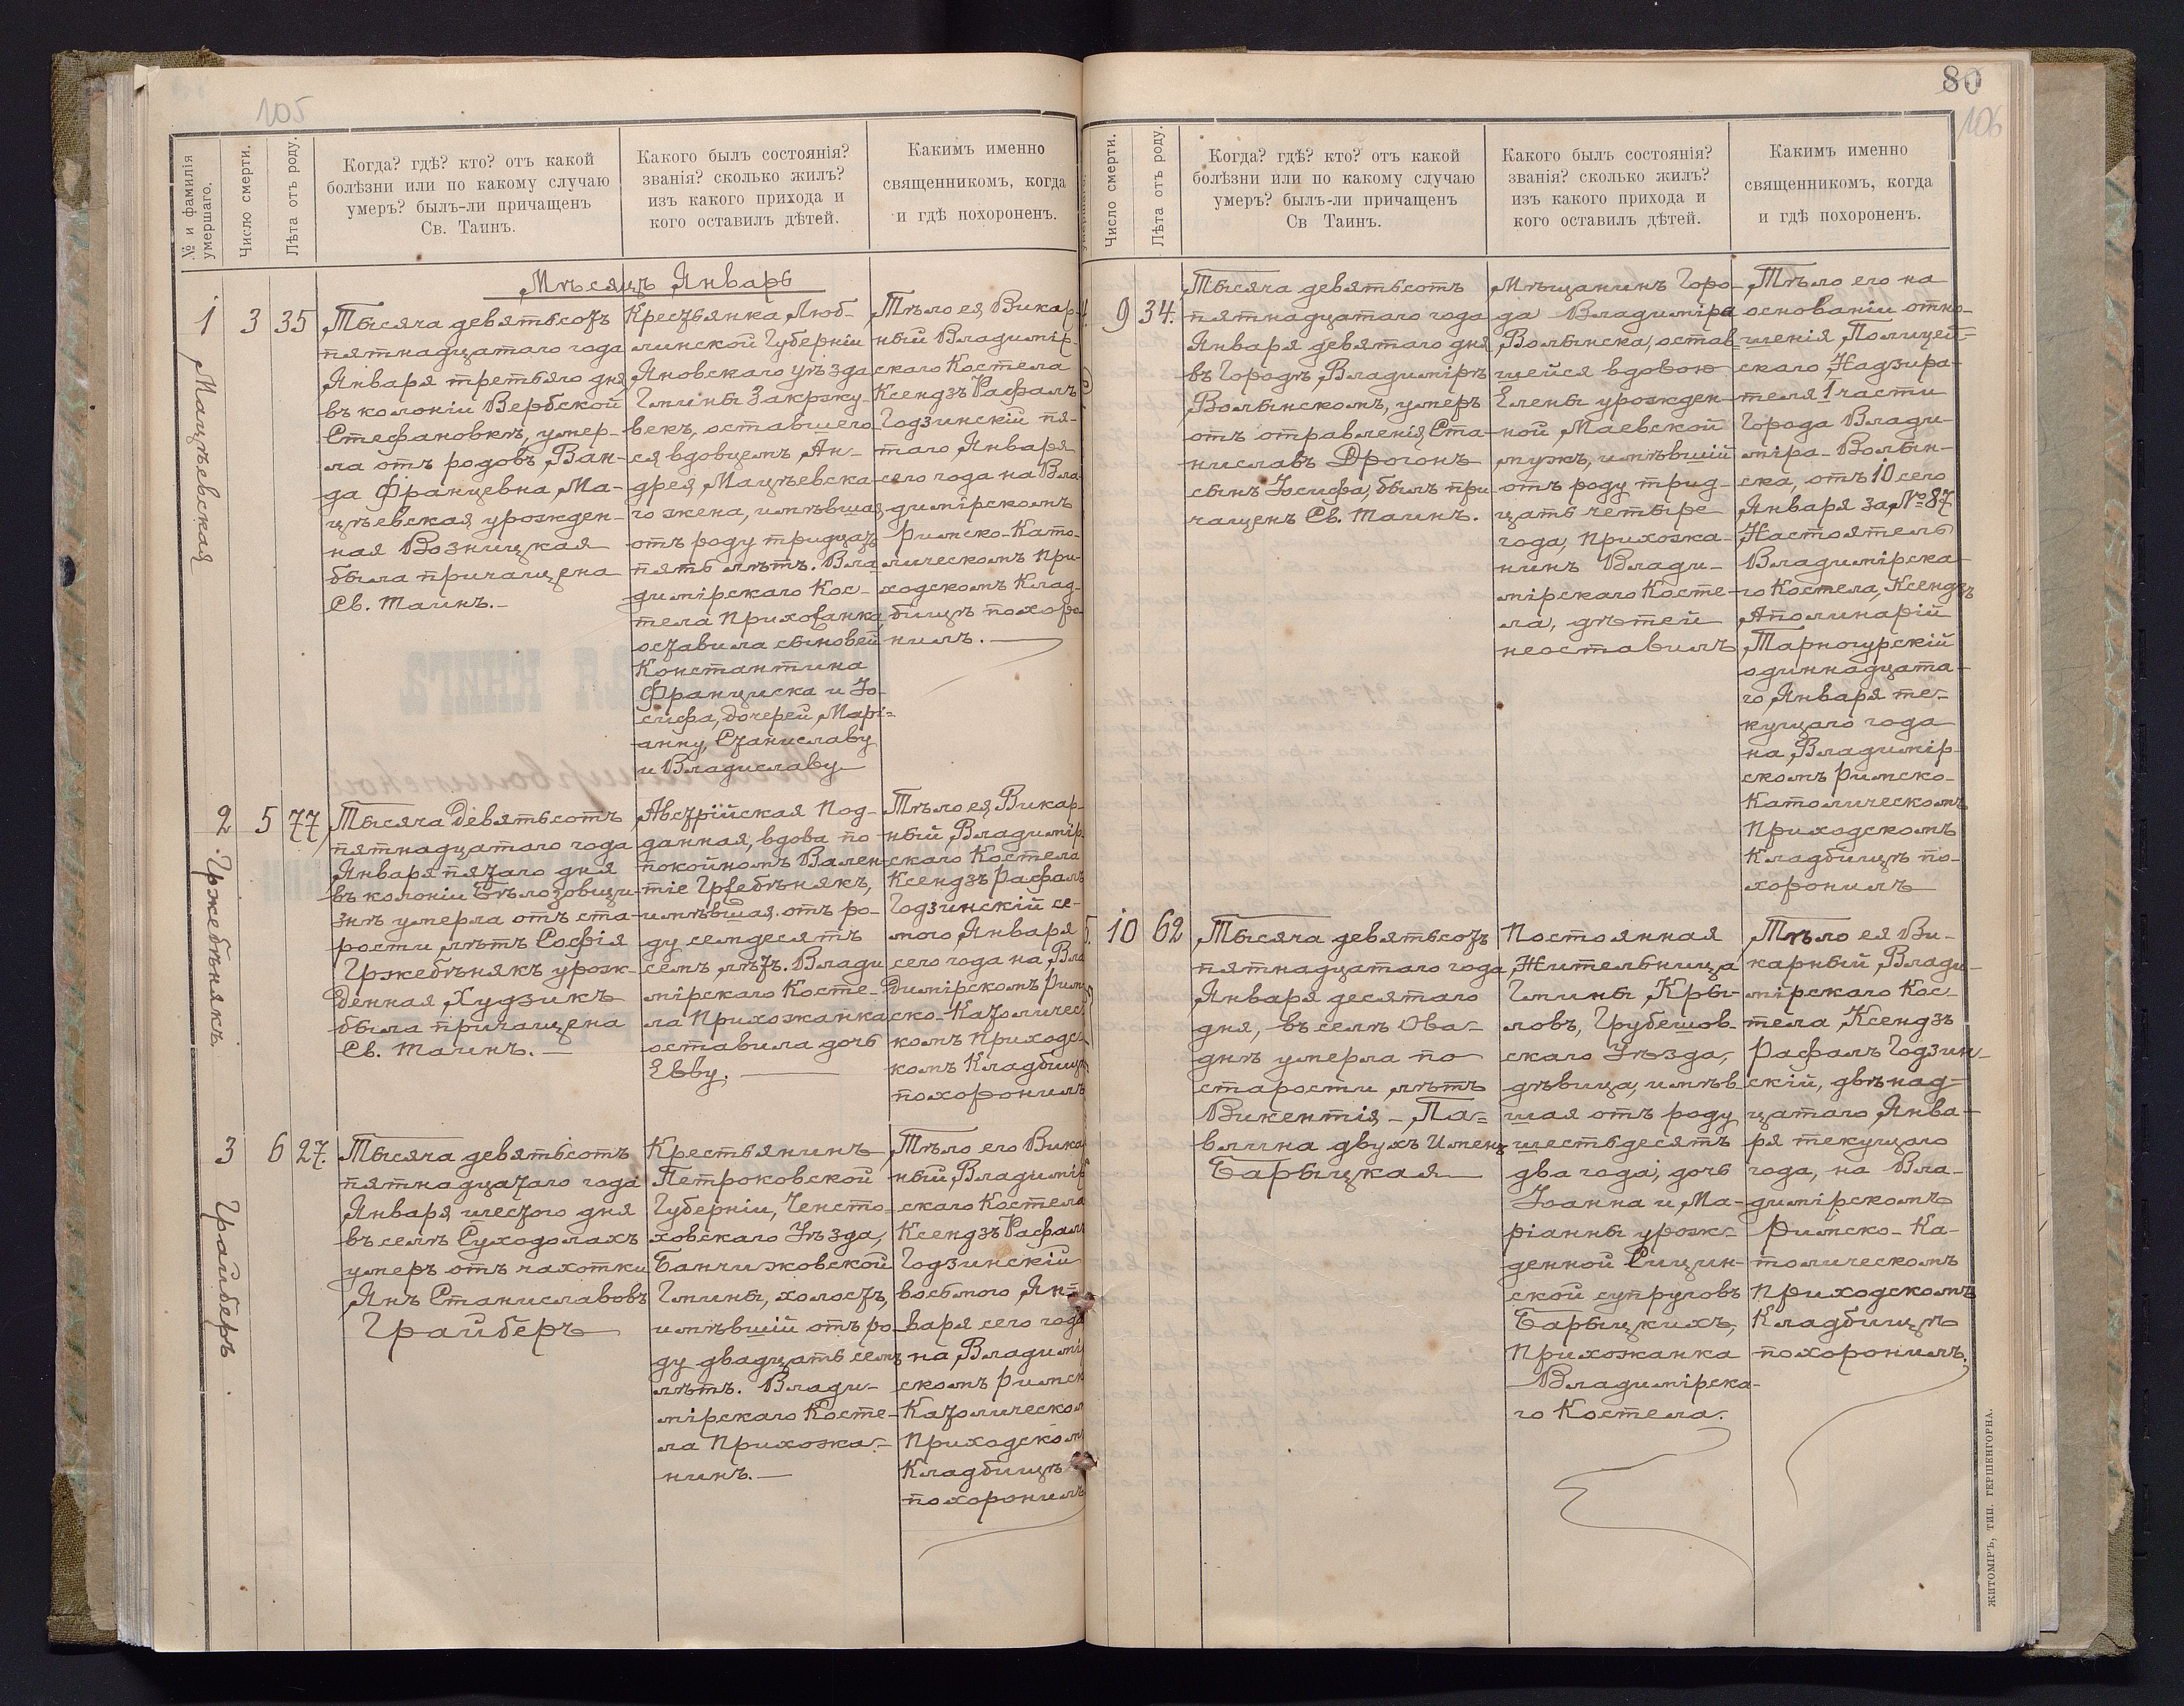 105
№ и фамилія умершаго.
Число смерти.
Лѣта отъ роду.
Когда? гдѣ? кто? отъ какой
болѣзни или по какому случаю
умеръ? былъ-ли причащенъ
Св. Таинъ.
Какого былъ состоянія?
званія? сколько жилъ?
изъ какого прихода и
кого оставилъ дѣтей.
Какимъ именно
священникомъ, когда
и гдѣ похороненъ.
Мѣсяцъ Январь
1
Мацѣевская
3
35
Тысяча девятьсотъ
пятнадцатаго года
Января третьяго дня
въ колоніи Вербской
Стефановкѣ, умер-
ла отъ родовъ Ван-
да Францевна Ма-
цѣевская урожден-
ная Возницкая
была причащена
Св. Таинъ.-
Крестьянка Люб-
линской Губерніи
Яновскаго уѣзда
Гмины Закржу-
векъ, оставшего-
ся вдовцемъ Ан-
дрея Мацѣевска-
го жена, имѣвшая
отъ роду тридцать
пять лѣтъ. Вла-
димірскаго Кос-
тела Прихожанка,
оставила сыновей
Константина
Франциска и Іо-
сифа, дочерей Марі-
анну, Станиславу
и Владиславу
Тѣло ея Викар-
ный Владимір-
скаго Костела
Ксендзъ Рафалъ
Годзинскій пя-
таго Января
сего года на Вла-
димірскомъ
Римско-Като-
лическомъ При-
ходскомъ Клад-
бищѣ похоро-
нилъ.
2
Гржебѣнякъ.
5
77
Тысяча девятьсотъ
пятнадцатаго года
Января пятаго дня
въ колоніи Бѣлозовщи-
знѣ умерла отъ ста-
рости лѣтъ Софія
Гржебѣнякъ урож-
денная Худзикъ
была причащена
Св. Таинъ.-
Австрійская Под-
данная, вдова по
покойномъ Вален-
тіе Гржебѣнякъ,
имѣвшая отъ ро-
ду семдесятъ
семъ лѣтъ. Влади
мірскаго Косте-
ла Прихожанка
оставила дочь
Евву.
Тѣло ея Викар-
ный Владимір-
скаго Костела
Ксендзъ Рафалъ
Годзинскій се-
мого Января
сего года на Вла
димірскомъ Рим
ско-Католичес
комъ Приходс-
комъ Кладбищѣ
похоронилъ
3
Грайберъ
6
27.
Тысяча девятьсотъ
пятнадцатаго года
Января шестого дня
въ селѣ Суходолахъ
умеръ отъ чахотки
Янъ Станиславовъ
Грайберъ
Крестьянинъ
Петроковской
Губерніи, Ченсто-
ховскаго Уѣзда,
Банчижовской
Гмины, холостъ,
имѣвшій отъ ро-
ду двадцать семъ
лѣтъ. Влади-
мірскаго Косте-
ла Прихожа-
нинъ.-
Тѣло его Вика
ный Владимір
скаго Костела
Ксендзъ Рафалъ
Годзинскій
восьмого Ян-
варя сего года
на Владимі
скомъ Римск
Католическом
Приходском
Кладбищѣ
похоронилъ
80
106
Число смерти.
Лѣта отъ роду.
Когда? гдѣ? кто? отъ какой
болѣзни или по какому случаю
умеръ? былъ-ли причащенъ
Св Таинъ.
Какого былъ состоянія?
званія? сколько жилъ?
изъ какого прихода и
кого оставилъ дѣтей.
Какимъ именно
священникомъ, когда
и гдѣ похороненъ.
9
34.
Тысяча девятьсотъ
пятнадцатаго года
Января девятаго дня
въ Городѣ Владимірѣ
Волынскомъ, умеръ
отъ отравленія Ста-
ниславъ Дрогонъ
сынъ Іосифа, былъ при
чащенъ Св. Таинъ.
Мѣщанинъ Горо-
да Владиміра
Волынска, остав-
шейся вдовою
Елены урожден-
ной Маевской
мужъ, имѣвшій
отъ роду трид-
цать четыре
года, Прихожа-
нинъ Влади-
мірскаго Косте-
ла, дѣтей
неоставилъ
Тѣло его на
основаніи отно-
шенія Полицей-
скаго Надзира-
теля 1 части
Города Влади-
міра-Волын-
ска, отъ 10 сего
Января за № 87
Настоятель
Владимірска-
го Костела, Ксендзъ
Аполинарій
Тарногурскій
одиннадцата-
го Января те-
кущаго года
на Владимір-
скомъ Римско-
Католическомъ
Приходскомъ
Кладбищѣ по-
хоронилъ
10
62
Тысяча девятьсотъ
пятнадцатаго года
Января десятаго
дня, въ селѣ Ова-
днѣ умерла по
старости лѣтъ
Викентія-Па-
влина двухъ Именъ
Барыцкая
Постоянная
Жительница
Гмины Кры-
ловъ, Грубешов-
скаго Уѣзда,
дѣвица, имѣв-
шая отъ роду
шестьдесятъ
два года, дочь
Іоанна и Ма-
ріанны урож-
денной Сицин-
ской супруговъ
Барыцкихъ,
Прихожанка
Владимірска-
го Костела.
Тѣло ея Ви-
карный Влади-
мірскаго Кос-
тела Ксендзъ
Рафалъ Годзин-
скій, двѣнад-
цатаго Янва-
ря текущаго
года, на Вла-
димірскомъ
Римско-Ка-
толическомъ
Приходскомъ
Кладбищѣ
похоронилъ.
ЖИТОМІРЪ, ТИП. ГЕРШЕНГОРНА.